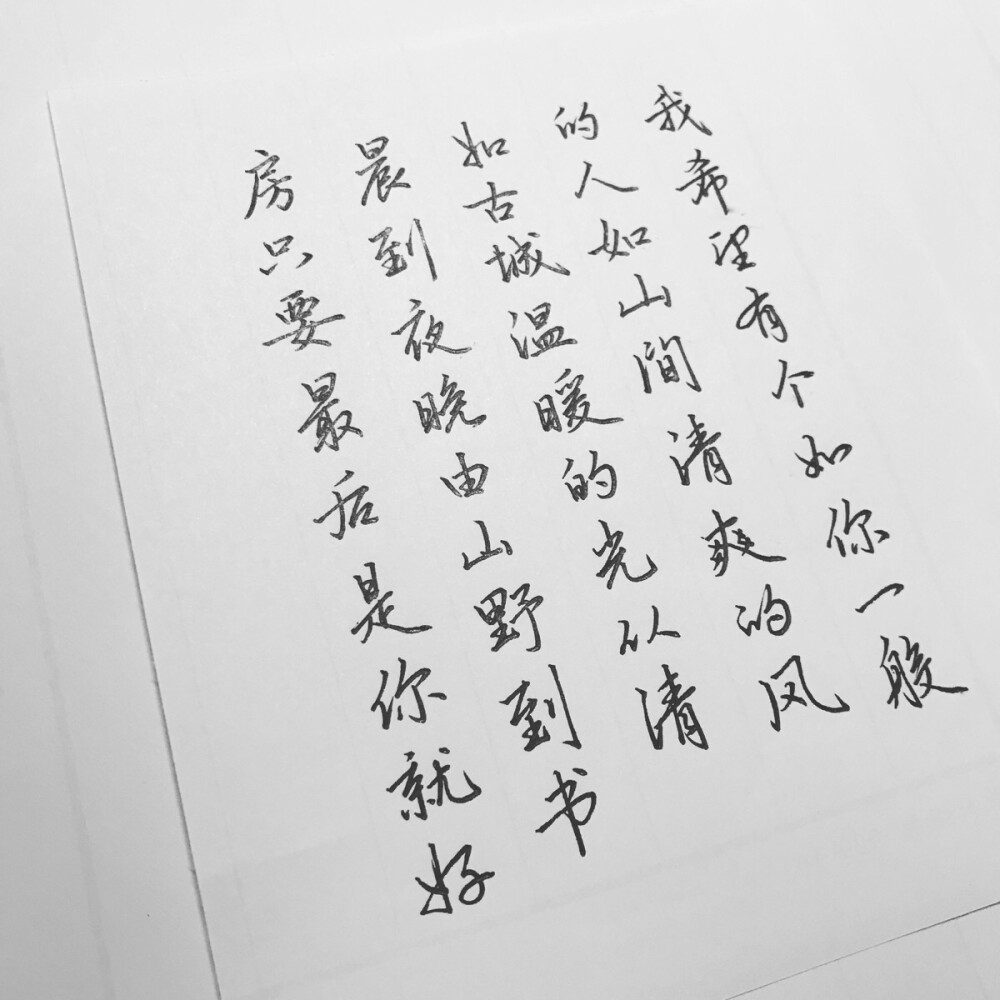 我希望有个如你一般
的人如山间清爽的风
如古城温暖的光以清
晨到夜晚由山野到书
房只要最后是你就好